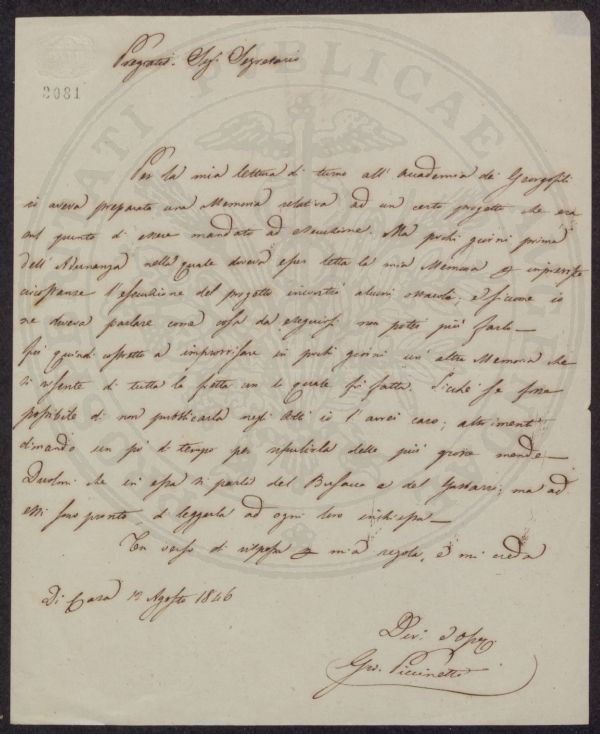 2081
Pregiatis. Sig. Segretario
Per la mia lettura di turno all' Accademia dei Georgofili
io aveva preparata una Memoria relativa ad un certo progetto che era
sul punto di essere mandato ad esecuzione. Ma pochi giorni prima
dell' Adunanza nella quale doveva esser letta la mia Memoria per impreviste
circostanze l'esecuzione del progetto incontrò alcuni ostacoli; e siccome io
ne doveva parlare come cosa da eseguirsi non potei più farlo —
Fui quindi costretto a improvvisare in pochi giorni un' altra Memoria che
si risente di tutta la fretta con la quale fu fatta. Sicchè se fosse
possibile di non pubblicarla negli Atti io l' avrei caro; altrimenti
dimando un pò di tempo per ripulirla delle più grosse mende —
Duolmi che in essa si parli del e del ; ma ad
essi sono pronto di leggerla ad ogni loro inchiesta —
Un verso di risposta per mia regola, e mi creda
Di Casa 13 Agosto 1846
Dev. ed Oss.
Gio. Piccinetti